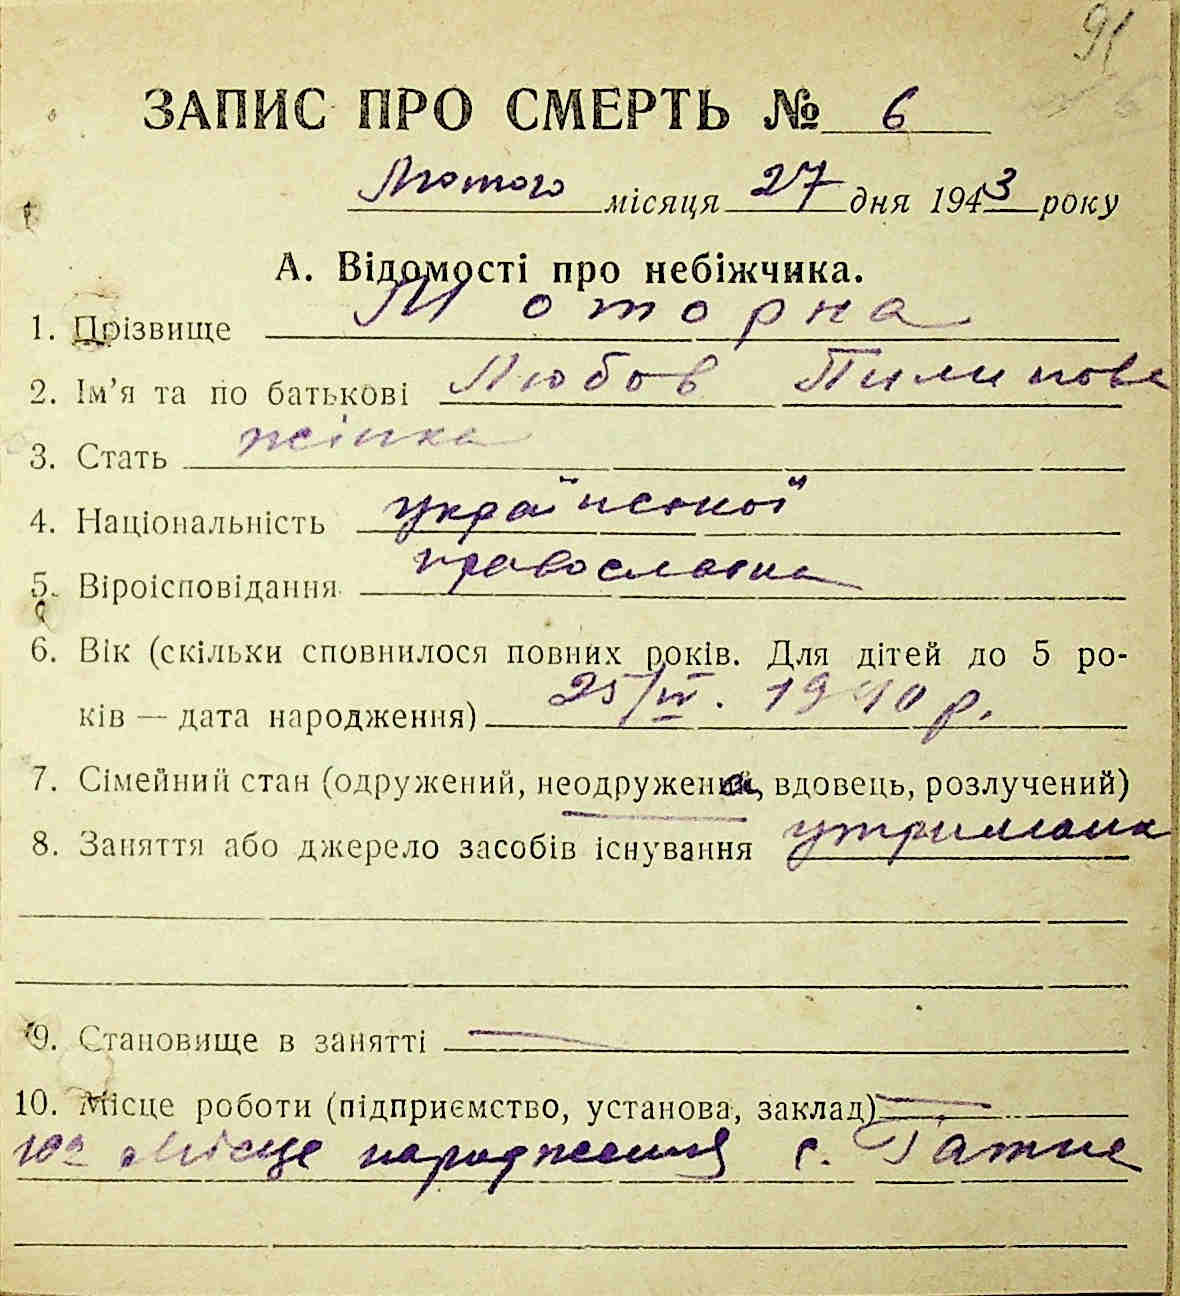 91
ЗАПИС ПРО СМЕРТЬ № 6
Лютого місяця 27 дня 1943 року
А. Відомості про небіжчика.
1. Прізвище Моторна
2. Ім'я та по батькові Любов Пилипова
3. Стать жінка
4. Національність української
5. Віроісповідання православна
6. Вік (скільки сповнилося повних років. Для дітей до 5 ро-
ків — дата народження) 25/IV. 1940 р.
7. Сімейний стан (одружений, неодружена, вдовець, розлучений)
8. Заняття або джерело засобів існування утриманк
9. Становище в занятті —
10. Місце роботи (підприємство, установа, заклад) —
10а Місце народження с. Гатне